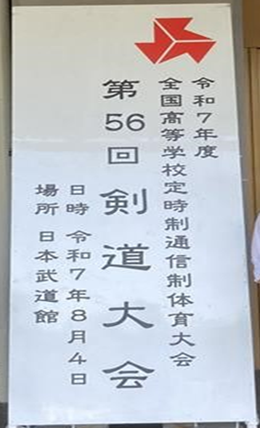 令和7年度
全国高等学校定時制通信制体育大会
第56回 剣道大会
日時 令和7年8月4日
場所 日本武道館